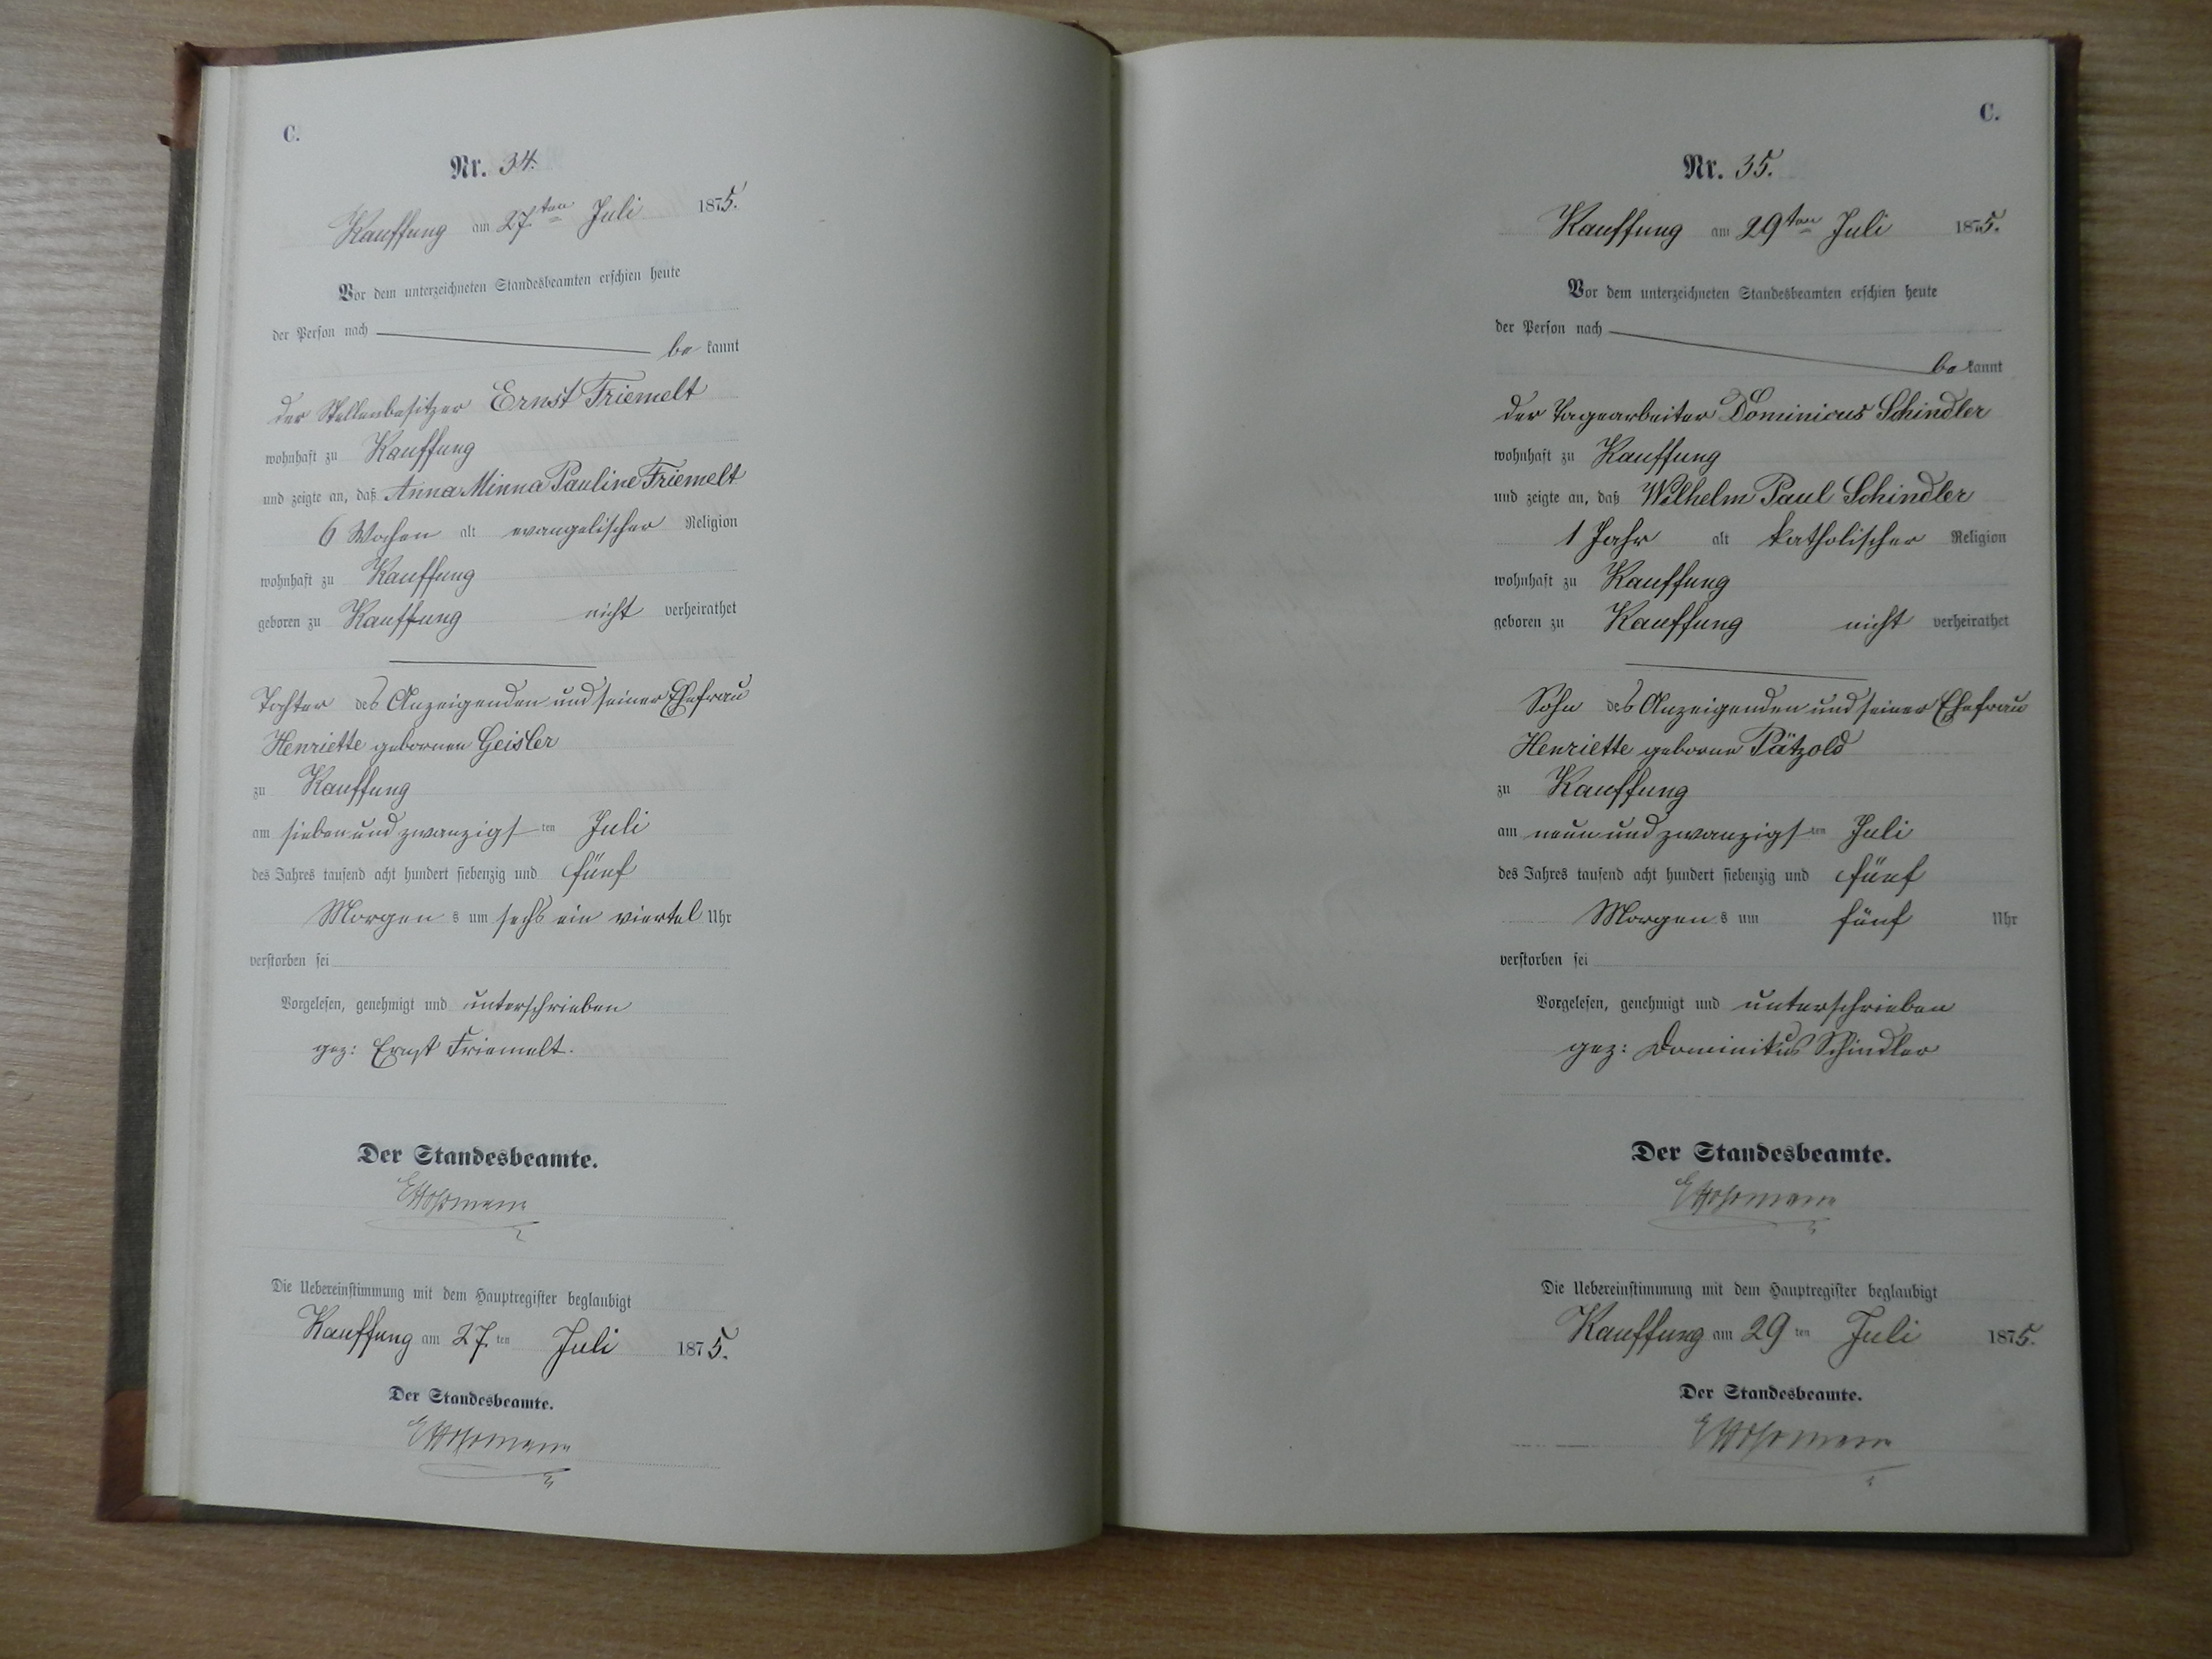 C.
Nr. 34.
Kauffung am 27ten Juli 1875.
Vor dem unterzeichneten Standesbeamten erschien heute
der Person nach
be kannt
der Stellenbesitzer Ernst Friemelt
wohnhaft zu Kauffung
und zeigte an, daß Anna Minna Pauline Friemelt
6 Wochen alt evangelischer Religion
wohnhaft zu Kauffung
geboren zu Kauffung nicht verheirathet
Tochter des Anzeigenden und seiner Ehefrau
Henriette gebornen Geisler
zu Kauffung
am sieben und zwanzigsten Juli
des Jahres tausend acht hundert siebenzig und fünf
Morgens um sechs ein viertel Uhr
verstorben sei
Vorgelesen, genehmigt und unterschrieben
gez: Ernst Friemelt.
Der Standesbeamte.
Die Uebereinstimmung mit dem Hauptregister beglaubigt
Kauffung am 27.ten Juli 1875.
Der Standesbeamte.
C.
Nr. 35.
Kauffung am 29ten Juli 1875.
Vor dem unterzeichneten Standesbeamten erschien heute
der Person nach
be kannt
der Tagearbeiter Dominicus Schindler
wohnhaft zu Kauffung
und zeigte an, daß Wilhelm Paul Schindler
1 Jahr alt katholischer Religion
wohnhaft zu Kauffung
geboren zu Kauffung nicht verheirathet
Sohn des Anzeigenden und seiner Ehefrau
Henriette geborne Pätzold
zu Kauffung
am neun und zwanzigsten Juli
des Jahres tausend acht hundert siebenzig und fünf
Morgens um fünf Uhr
verstorben sei
Vorgelesen, genehmigt und unterschrieben
gez: Dominikus Schindler
Der Standesbeamte.
Die Uebereinstimmung mit dem Hauptregister beglaubigt
Kauffung am 29ten Juli 1875.
Der Standesbeamte.